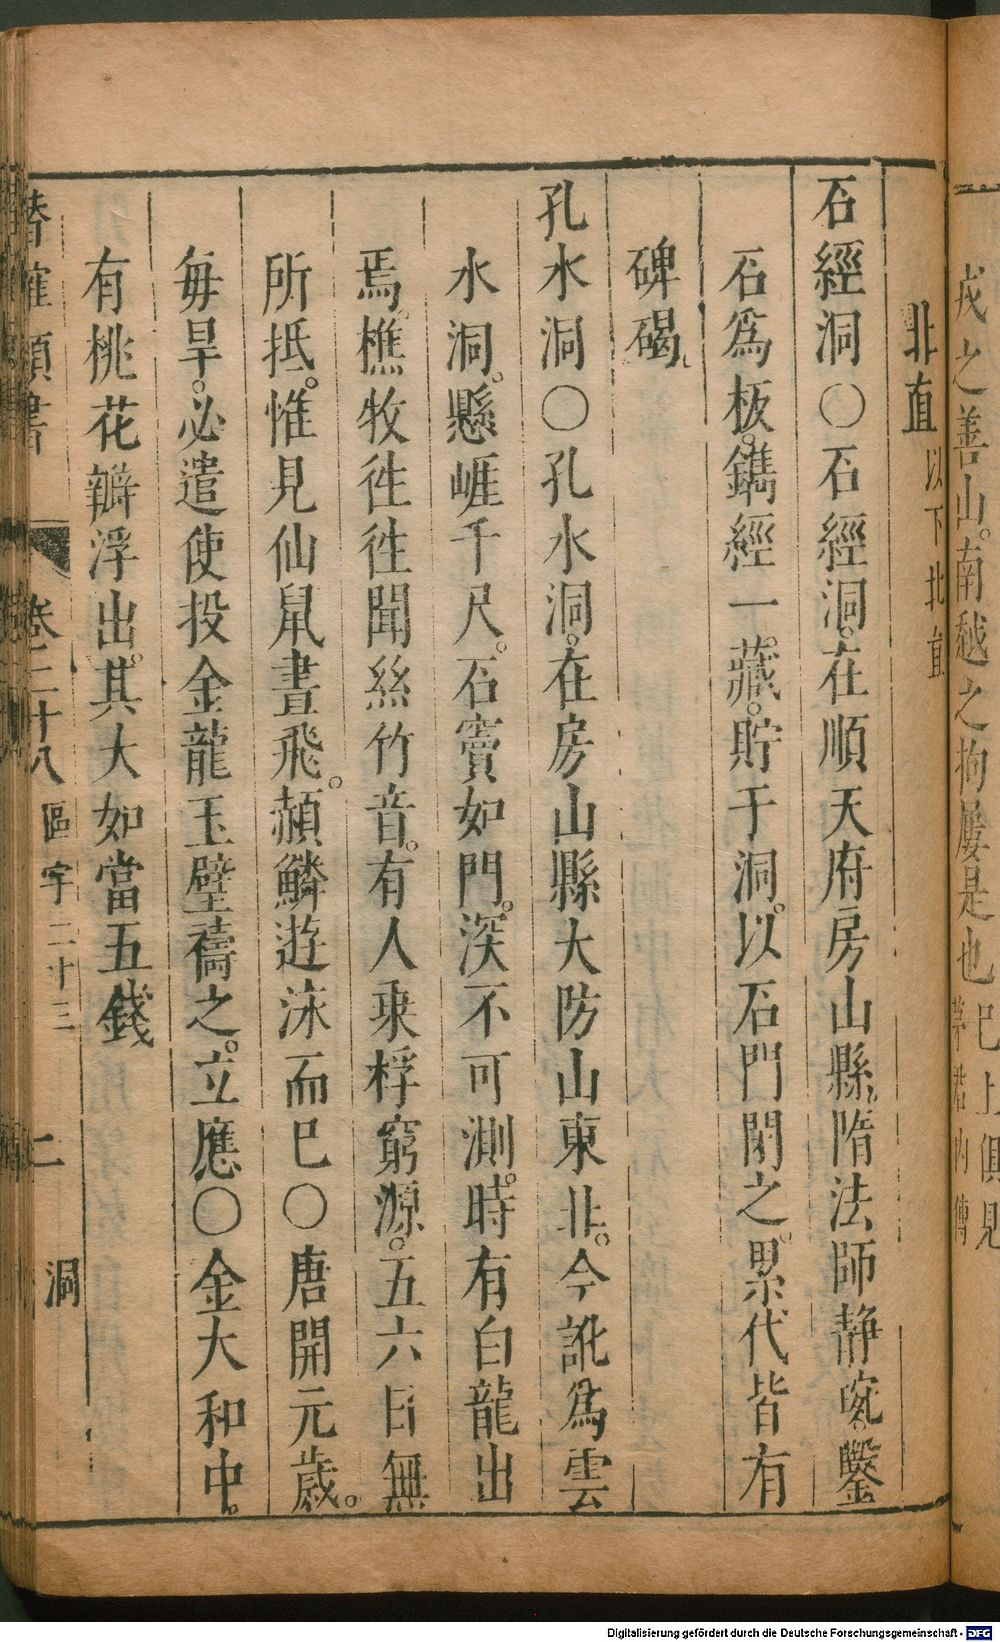 戎之善山。南越之拘屢是也已上俱見茅君内傳
北直以下北直
石經洞○石經洞。在順天府房山縣。隋法師静琬。鑿
石爲板。鐫經一藏。貯于洞。以石門閉之。累代皆有
碑碣。
孔水洞○孔水洞。在房山縣大防山東北。今訛爲雲
水洞。懸崕千尺。石竇如門。深不可測。時有白龍出
焉。樵牧徃徃聞絲竹音。有人乘桴窮源。五六日無
所抵。惟見仙鼠晝飛。赬鱗逰泳而巳○唐開元歲。
每旱。必遣使投金龍玉璧禱之。立應○金大和中。
有桃花瓣浮出。其大如當五錢
潛確類書 卷二十八 區宇二十三 二 洞
Digitalisierung gefördert durch die Deutsche Forschungsgemeinschaft - DFG